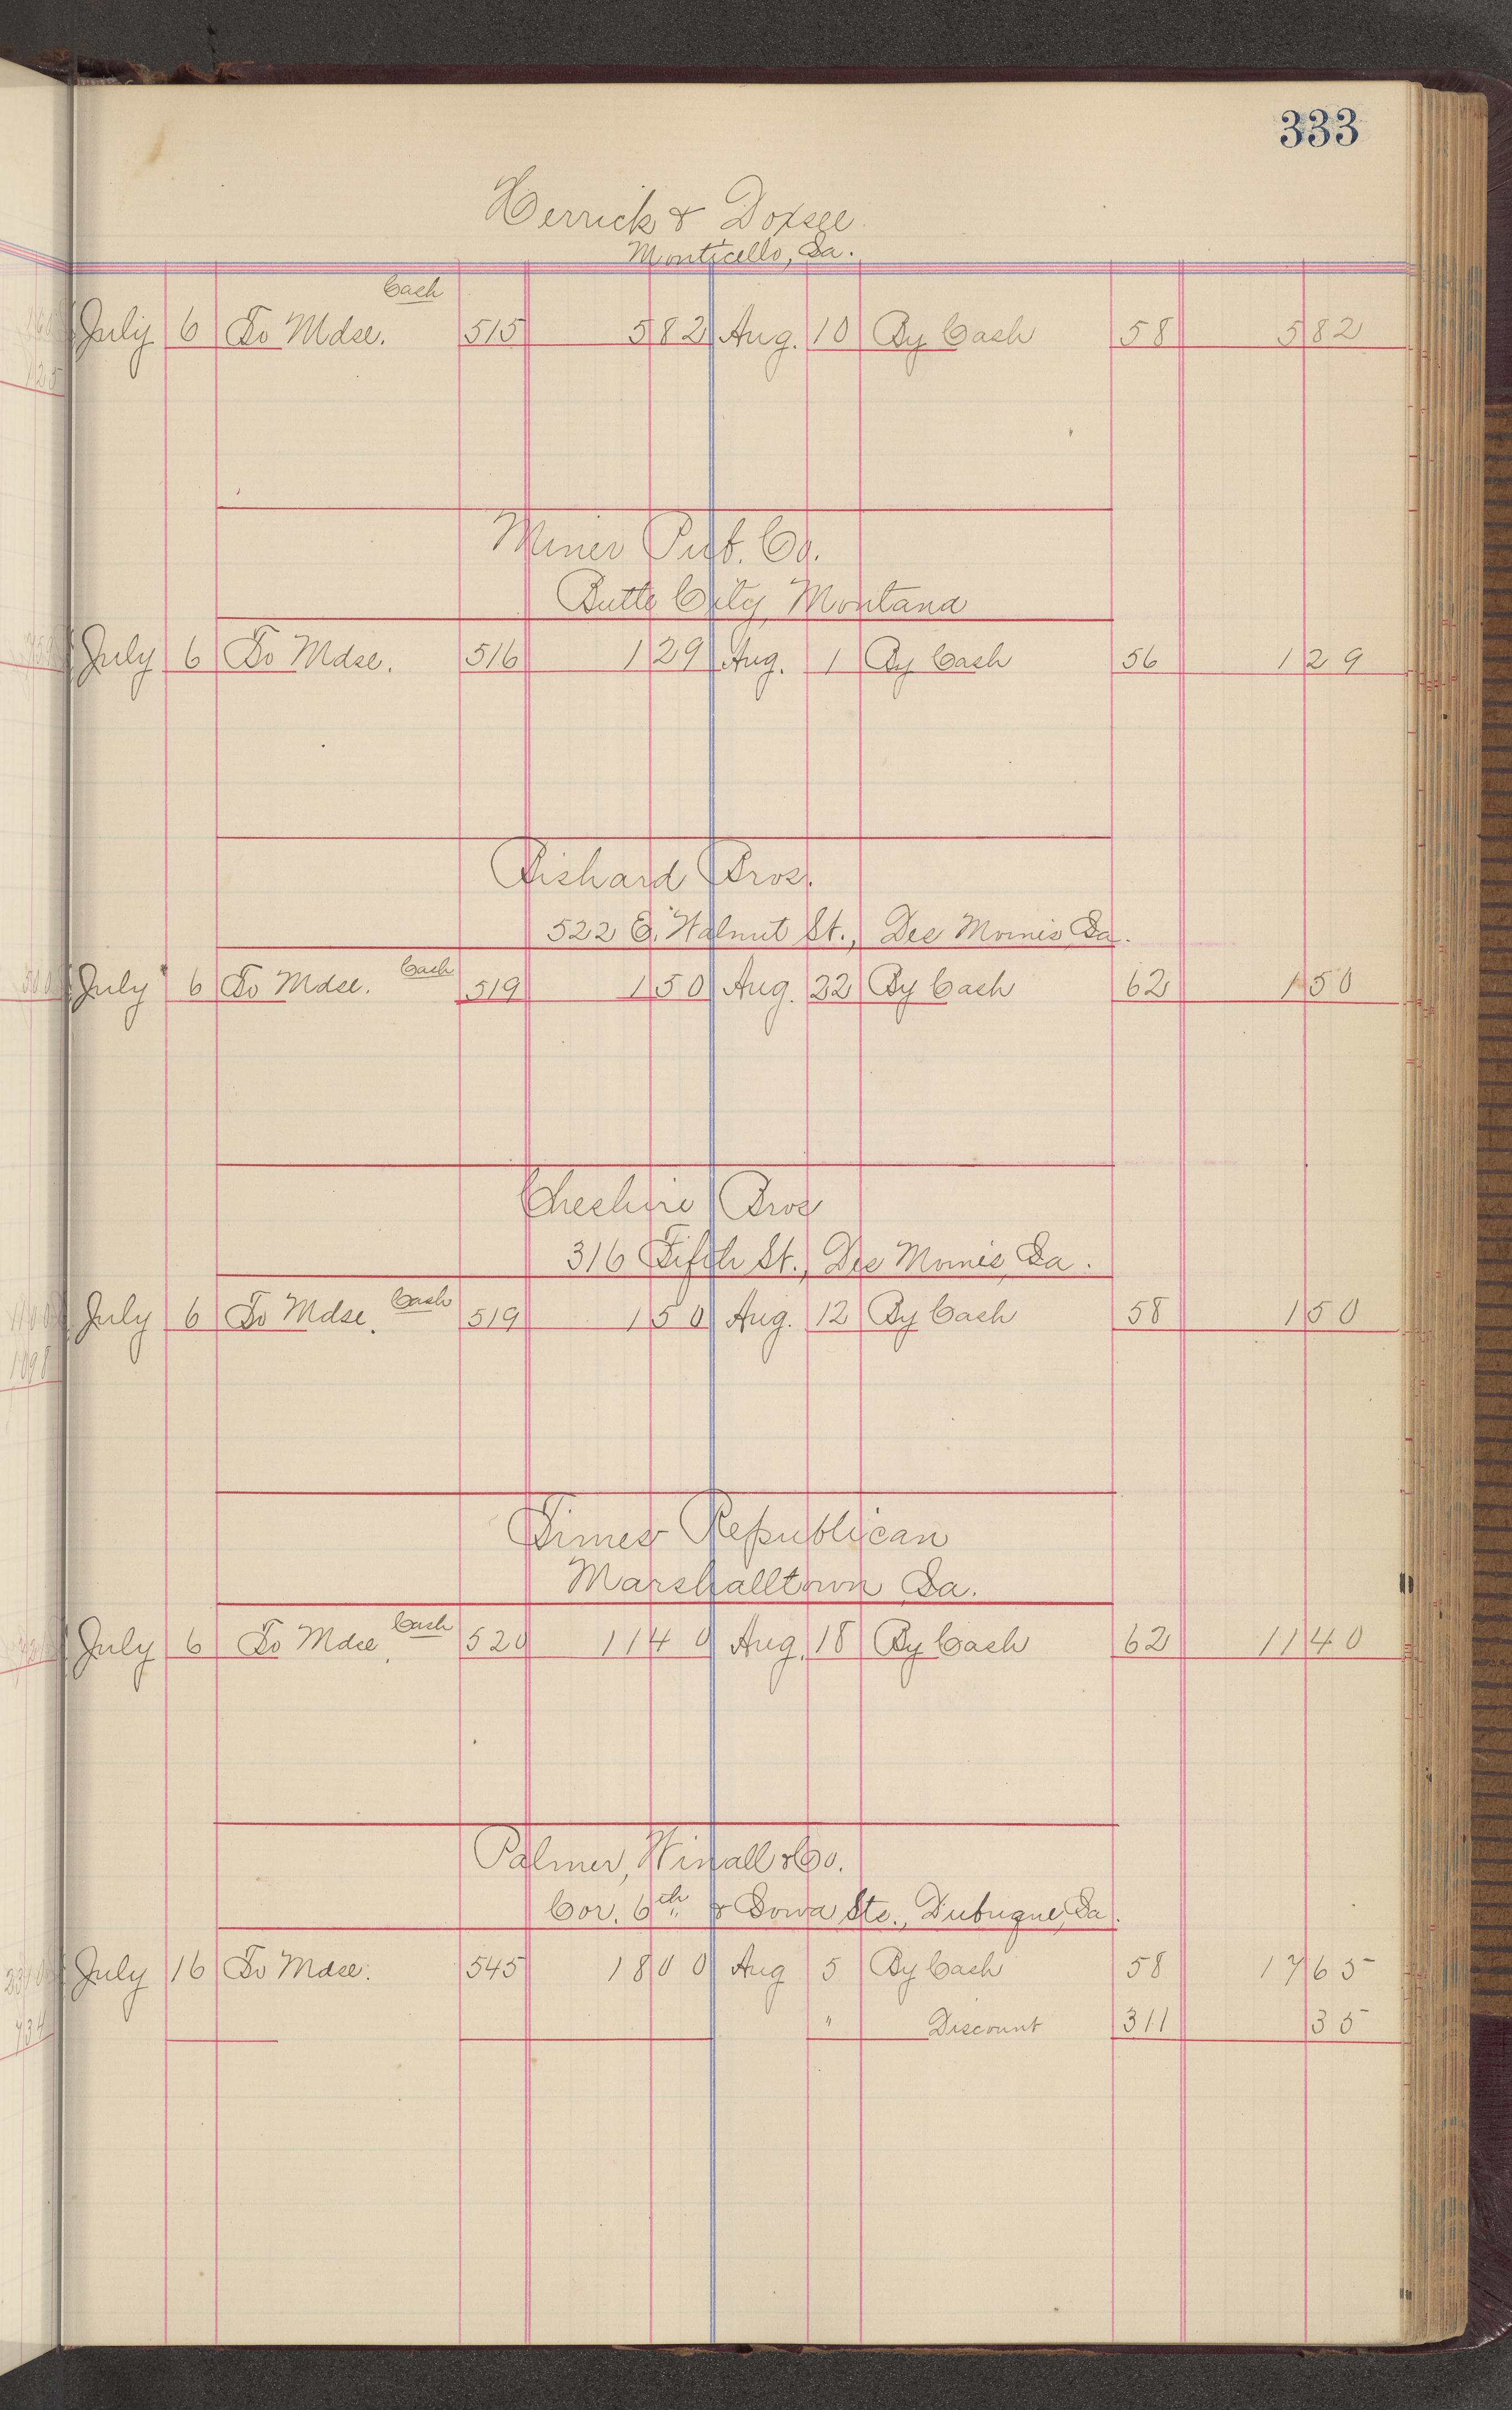 333
Herrick & Doxsee
Monticello, Ia.
Cash
July 6 To Mdse. 515 5 82 Aug. 10 By Cash 58 5 82
Miner Pub. Co.
Butte City, Montana
July 6 To Mdse. 516 1 29 Aug. 1 By Cash 56 1 29
Bishard Bros.
522 E. Walnut St., Des Moines Ia.
July 6 To Mdse. Cash 519 1 50 Aug. 22 By Cash 62 1 50
Cheshire Bros
316 Fifth St., Des Moines, Ia.
July 6 To Mdse. Cash 519 1 50 Aug. 12 By Cash 58 1 50
Times Republican
Marshalltown, Ia.
July 6 To Mdse. Cash 520 11 40 Aug. 18 By Cash 62 11 40
Palmer, Winall & Co.
Cor. 6th & Iowa Sts., Dubuque, Ia.
July 16 To Mdse. 545 18 00 Aug 5 By Cash 58 17 65
" Discount 311 35